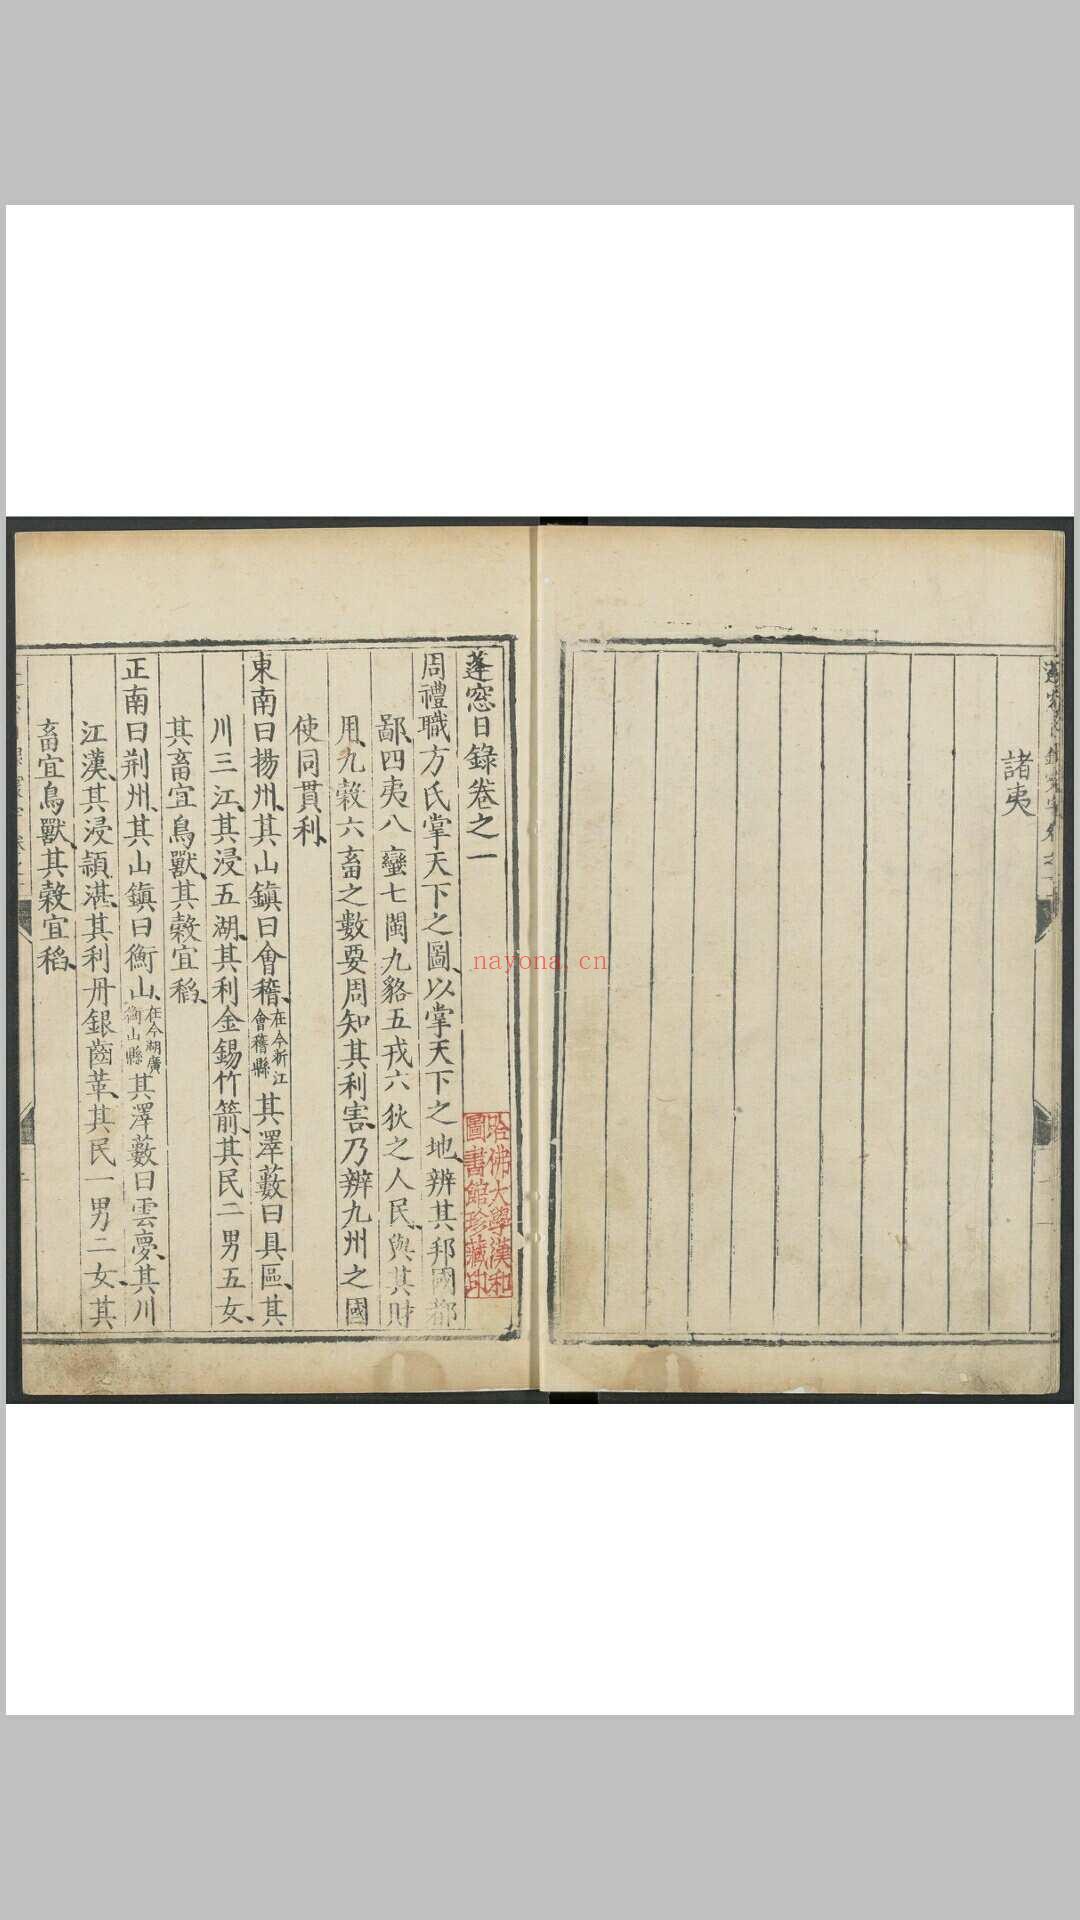 諸夷
蓬窓日錄卷之一
周禮職方氏掌天下之圖以掌天下之地辨其邦國都
鄙四夷八蠻七閩九貉五戎六狄之人民與其財
用九榖六畜之數要周知其利害乃辨九州之國
使同貫利
東南曰揚州其山鎮曰會稽在今浙江會稽縣其澤藪曰具區其
川三江其浸五湖其利金錫竹箭其民二男五女
其畜宜鳥獸其榖宜稻
正南曰荆州其山鎮曰衡山在今湖廣衡山縣其澤藪曰雲夢其川
江漢其浸潁湛其利丹銀齒革其民一男二女其
畜宜鳥獸其榖宜稻
哈佛大學漢和
圖書館珍藏印
nayona.cn